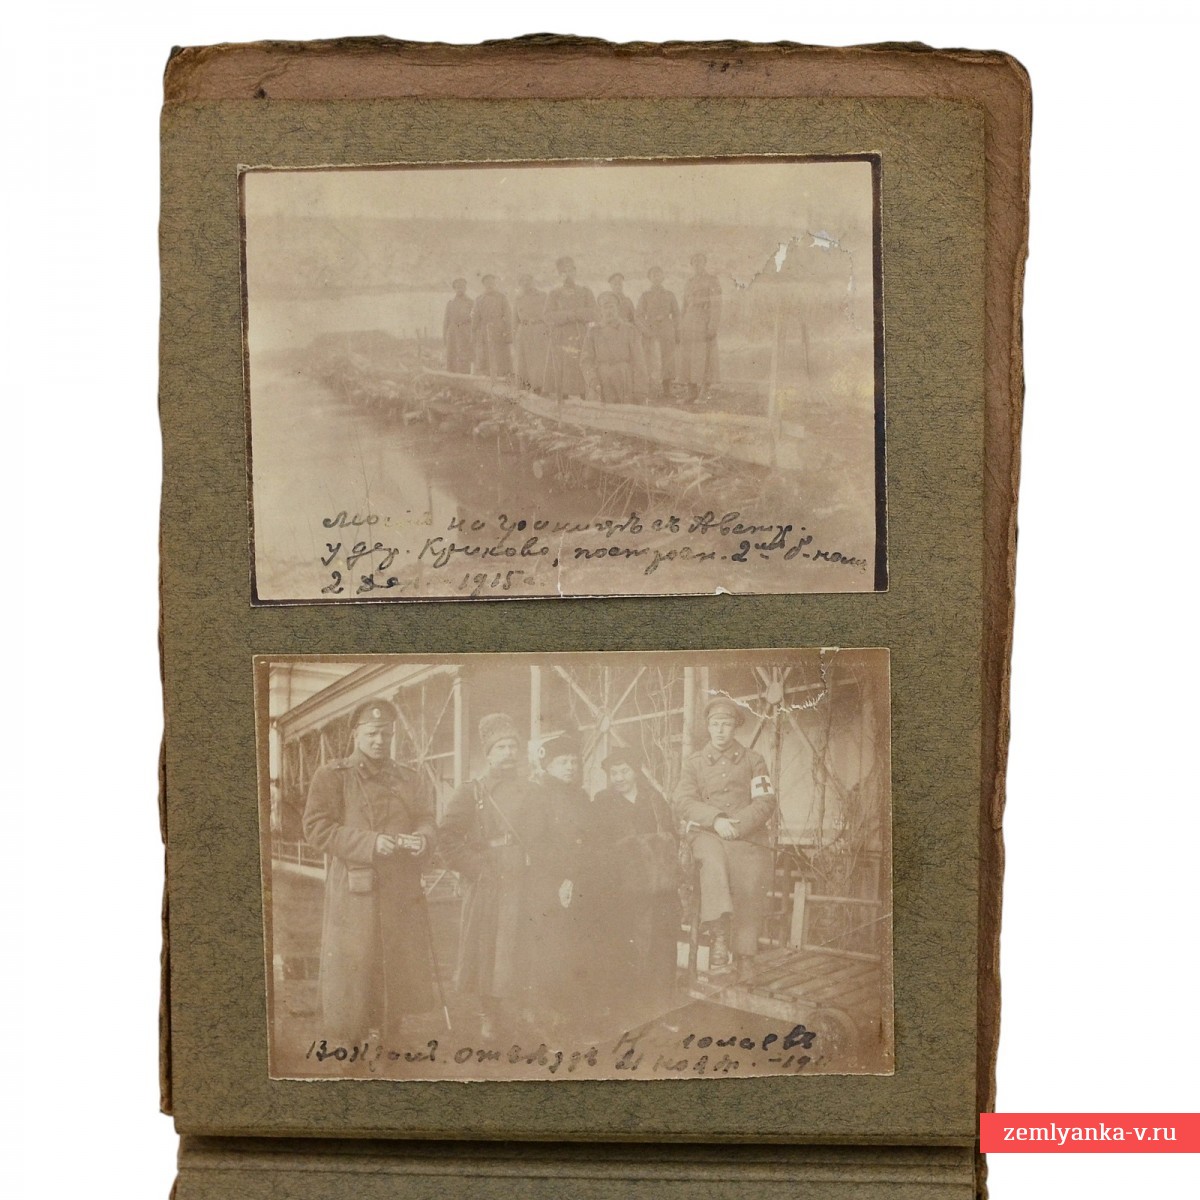 Мостъ на границѣ съ Австр.
у дер. Куликово, построен. 2ымъ б-номъ
2 Дек. 1915 г.
Вокзалъ. отъѣздъ
21 нояб. - 191
zemlyanka-v.ru